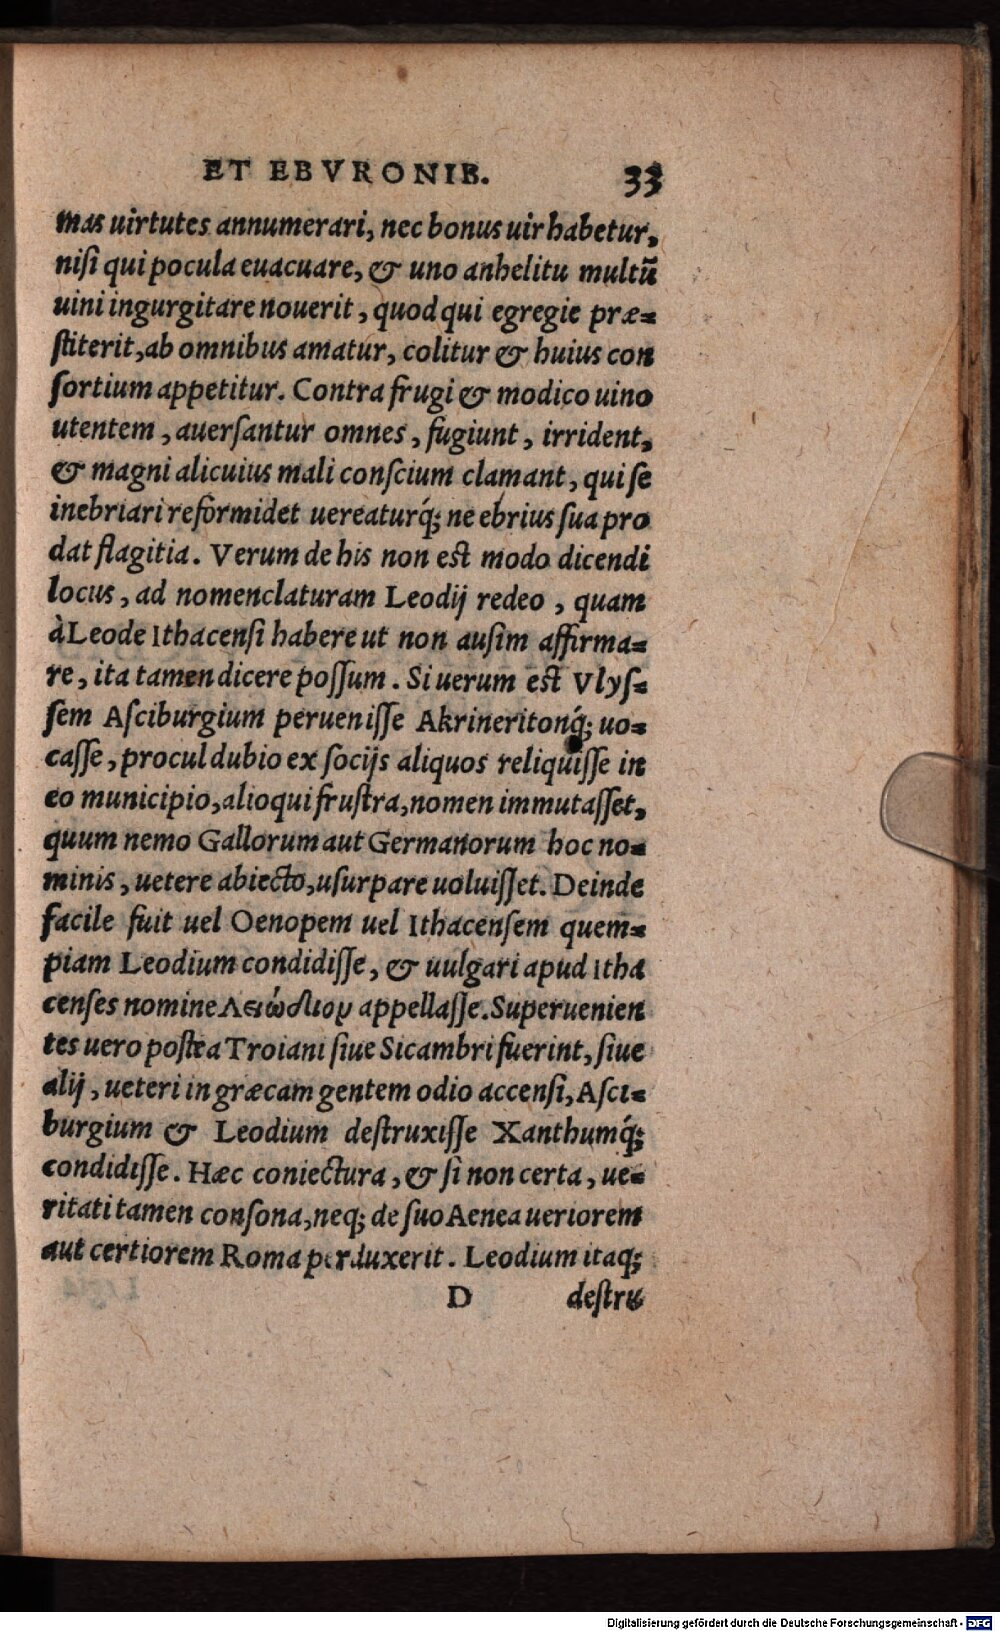 ET EBVRONIB. 33
mas uirtutes annumerari, nec bonus uir habetur,
nisi qui pocula euacuare, & uno anhelitu multū
uini ingurgitare nouerit, quod qui egregie præ=
stiterit, ab omnibus amatur, colitur & huius con
sortium appetitur. Contra frugi & modico uino
utentem, auersantur omnes, fugiunt, irrident,
& magni alicuius mali conscium clamant, qui se
inebriari reformidet uereaturq́; ne ebrius sua pro
dat flagitia. Verum de his non est modo dicendi
locus, ad nomenclaturam Leodij redeo, quam
à Leode Ithacensi habere ut non ausim affirma=
re, ita tamen dicere possum. Si uerum est Vlys=
sem Asciburgium peruenisse Akrineritonq́; uo=
casse, procul dubio ex socijs aliquos reliquisse in
eo municipio, alioqui frustra, nomen immutasset,
quum nemo Gallorum aut Germanorum hoc no=
minis, uetere abiecto, usurpare uoluisset. Deinde
facile fuit uel Oenopem uel Ithacensem quem=
piam Leodium condidisse, & uulgari apud Itha
censes nomine Λειώδιον appellasse. Superuenien
tes uero postea Troiani siue Sicambri fuerint, siue
alij, ueteri in græcam gentem odio accensi, Asci=
burgium & Leodium destruxisse Xanthumq́;
condidisse. Hæc coniectura, & si non certa, ue=
ritati tamen consona, neq; de suo Aenea ueriorem
aut certiorem Roma perduxerit. Leodium itaq;
D destru
Digitalisierung gefördert durch die Deutsche Forschungsgemeinschaft - DFG